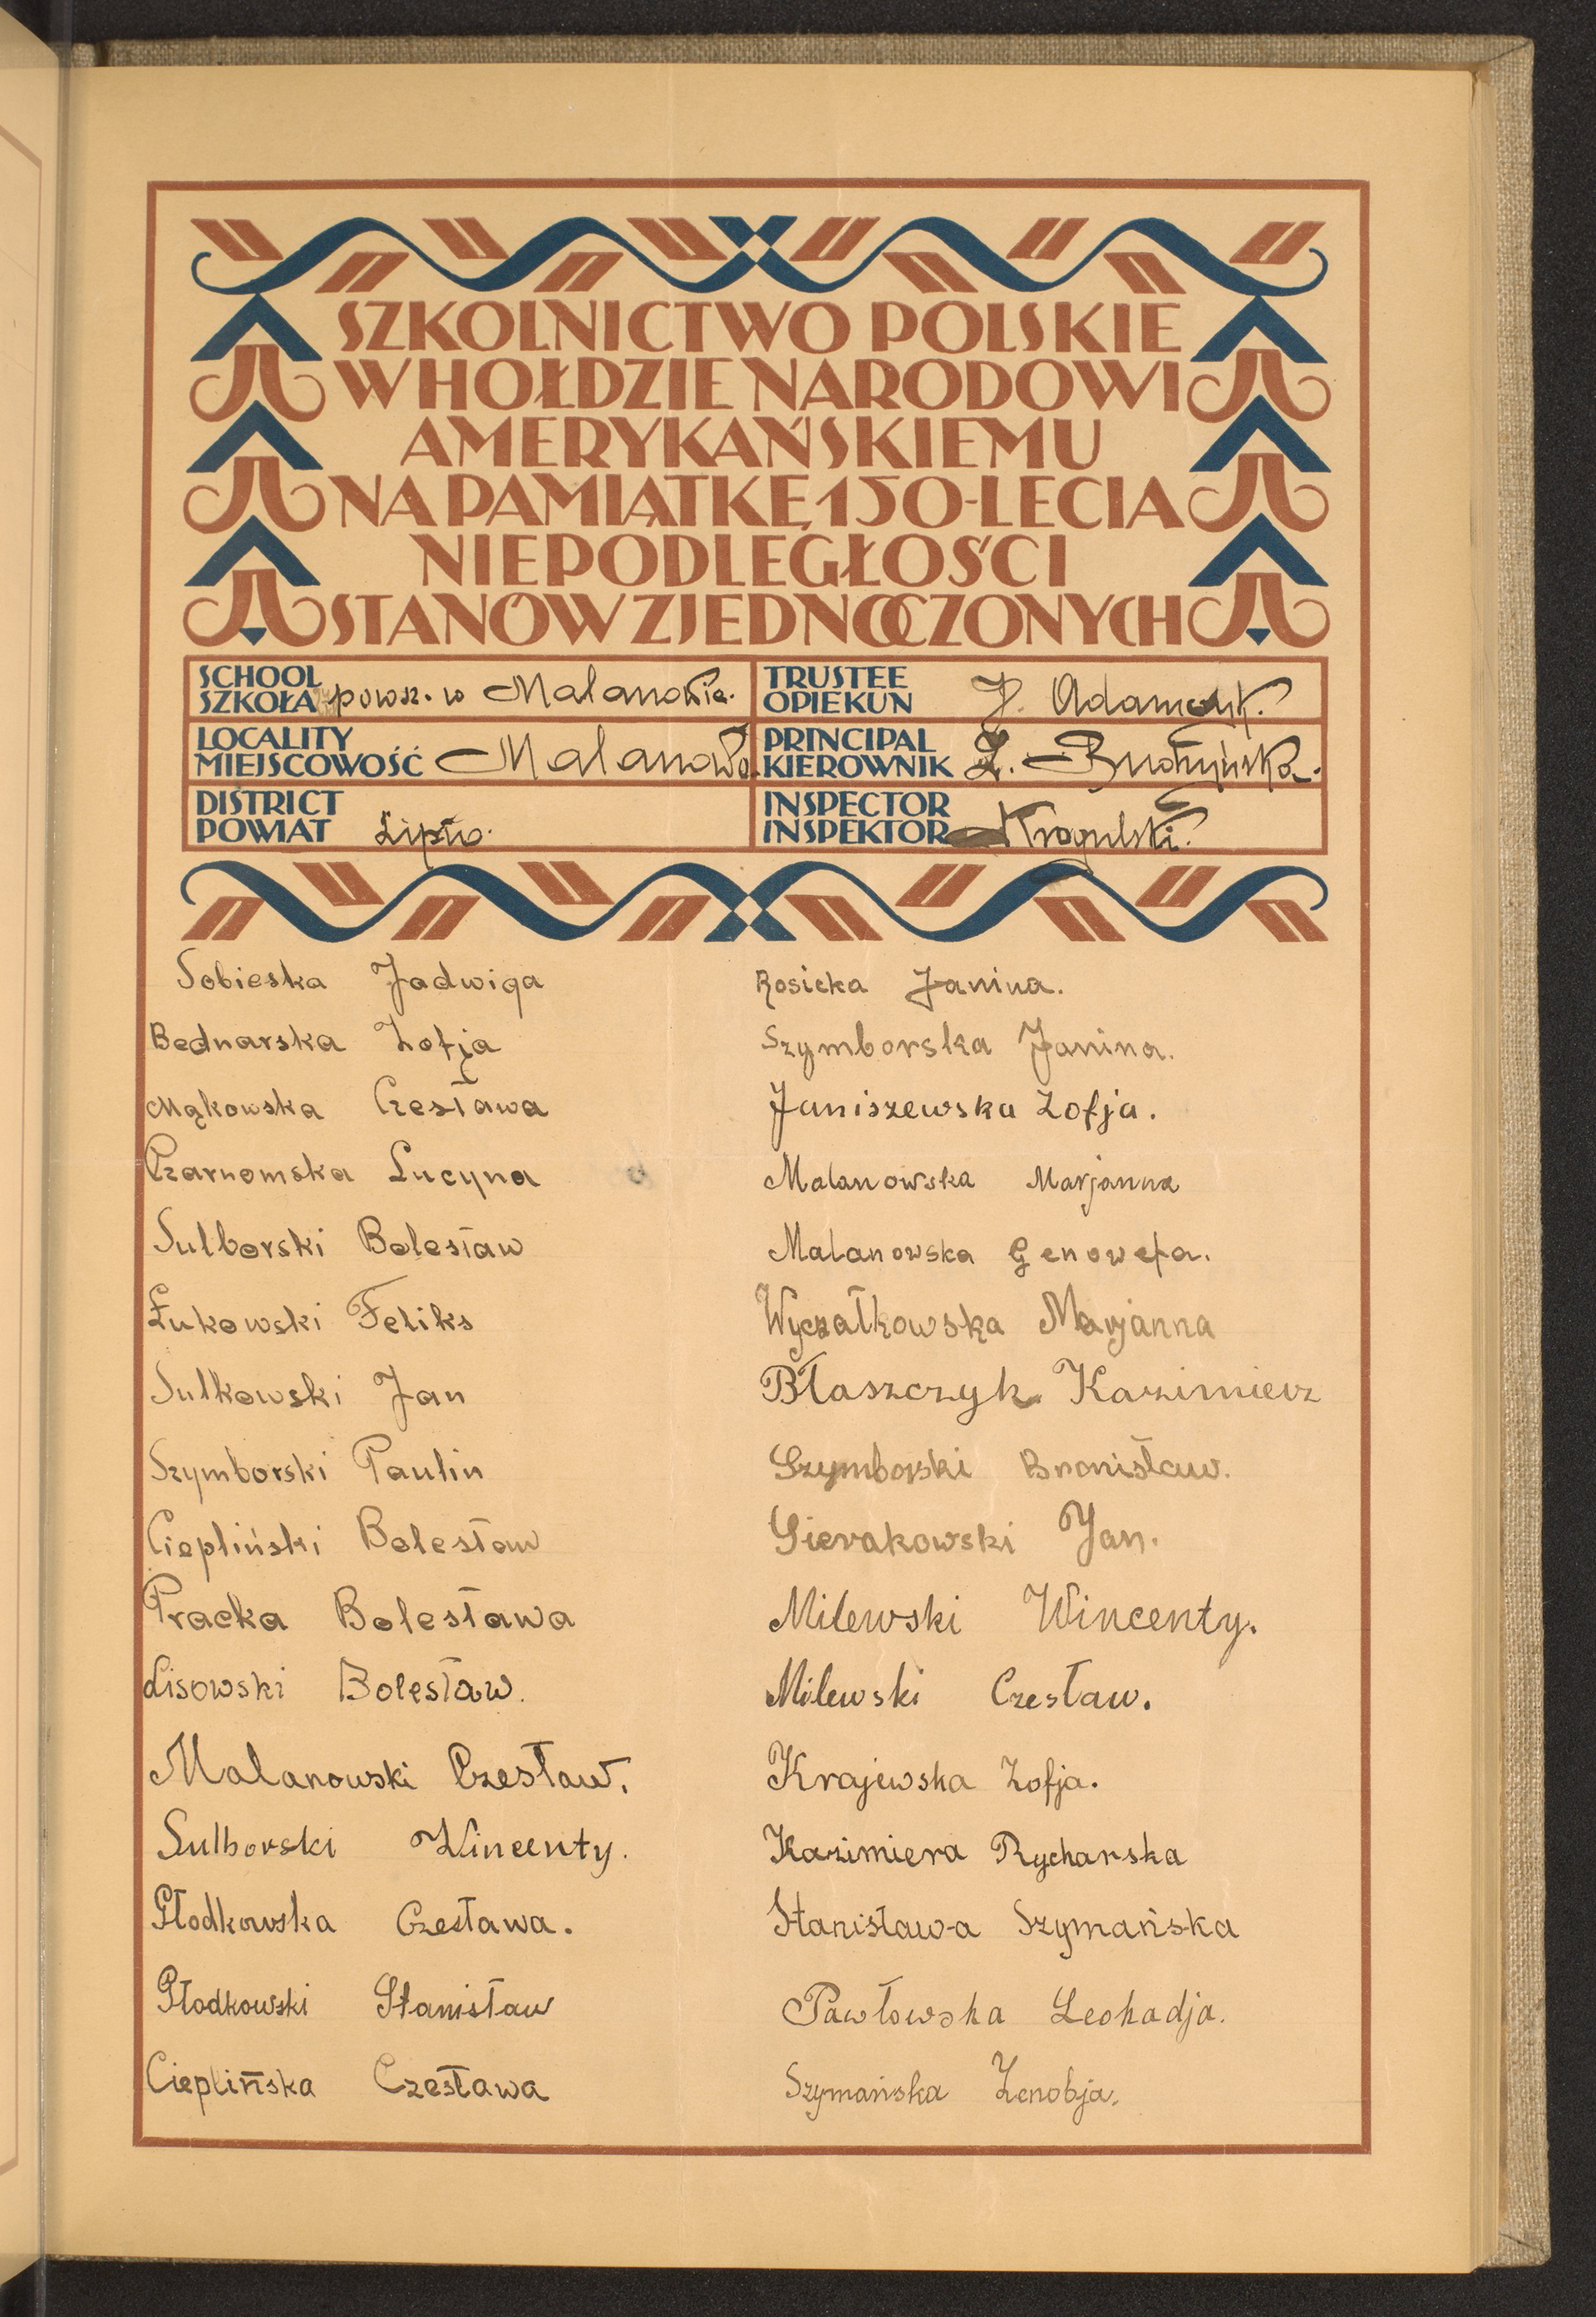 SZKOLNICTWO POLSKIE
W HOŁDZIE NARODOWI
AMERYKAŃSKIEMU
NA PAMIĄTKĘ 150-LECIA
NIEPODLEGŁOŚCI
STANÓW ZJEDNOCZONYCH
SCHOOL
SZKOŁA powsz. w Malanowie.
TRUSTEE
OPIEKUN J. Adamczyk.
LOCALITY
MIEJSCOWOŚĆ Malanowo.
PRINCIPAL
KIEROWNIK
DISTRICT
POWIAT Lipno.
INSPECTOR
INSPEKTOR Krogulski.
Sobieska Jadwiga
Bednarska Zofja
Mąkowska Czesława
Czarnomska Lucyna
Sulborski Bolesław
Łukowski Feliks
Sulkowski Jan
Szymborski Paulin
Ciepliński Bolesław
Pracka Bolesława
Lisowski Bolesław.
Malanowski Czesław.
Sulborski Wincenty.
Płodkowska Czesława.
Płodkowski Stanisław
Cieplińska Czesława
Rosicka Janina.
Szymborska Janina.
Janiszewska Zofja.
Malanowska Marjanna
Malanowska Genowefa.
Wyczałkowska Marjanna
Błaszczyk Kazimierz
Szymborski Bronisław.
Sierakowski Jan.
Milewski Wincenty.
Milewski Czesław.
Krajewska Zofja.
Kazimiera Rycharska
Stanisława Szymańska
Pawłowska Leokadja.
Szymańska Zenobja.